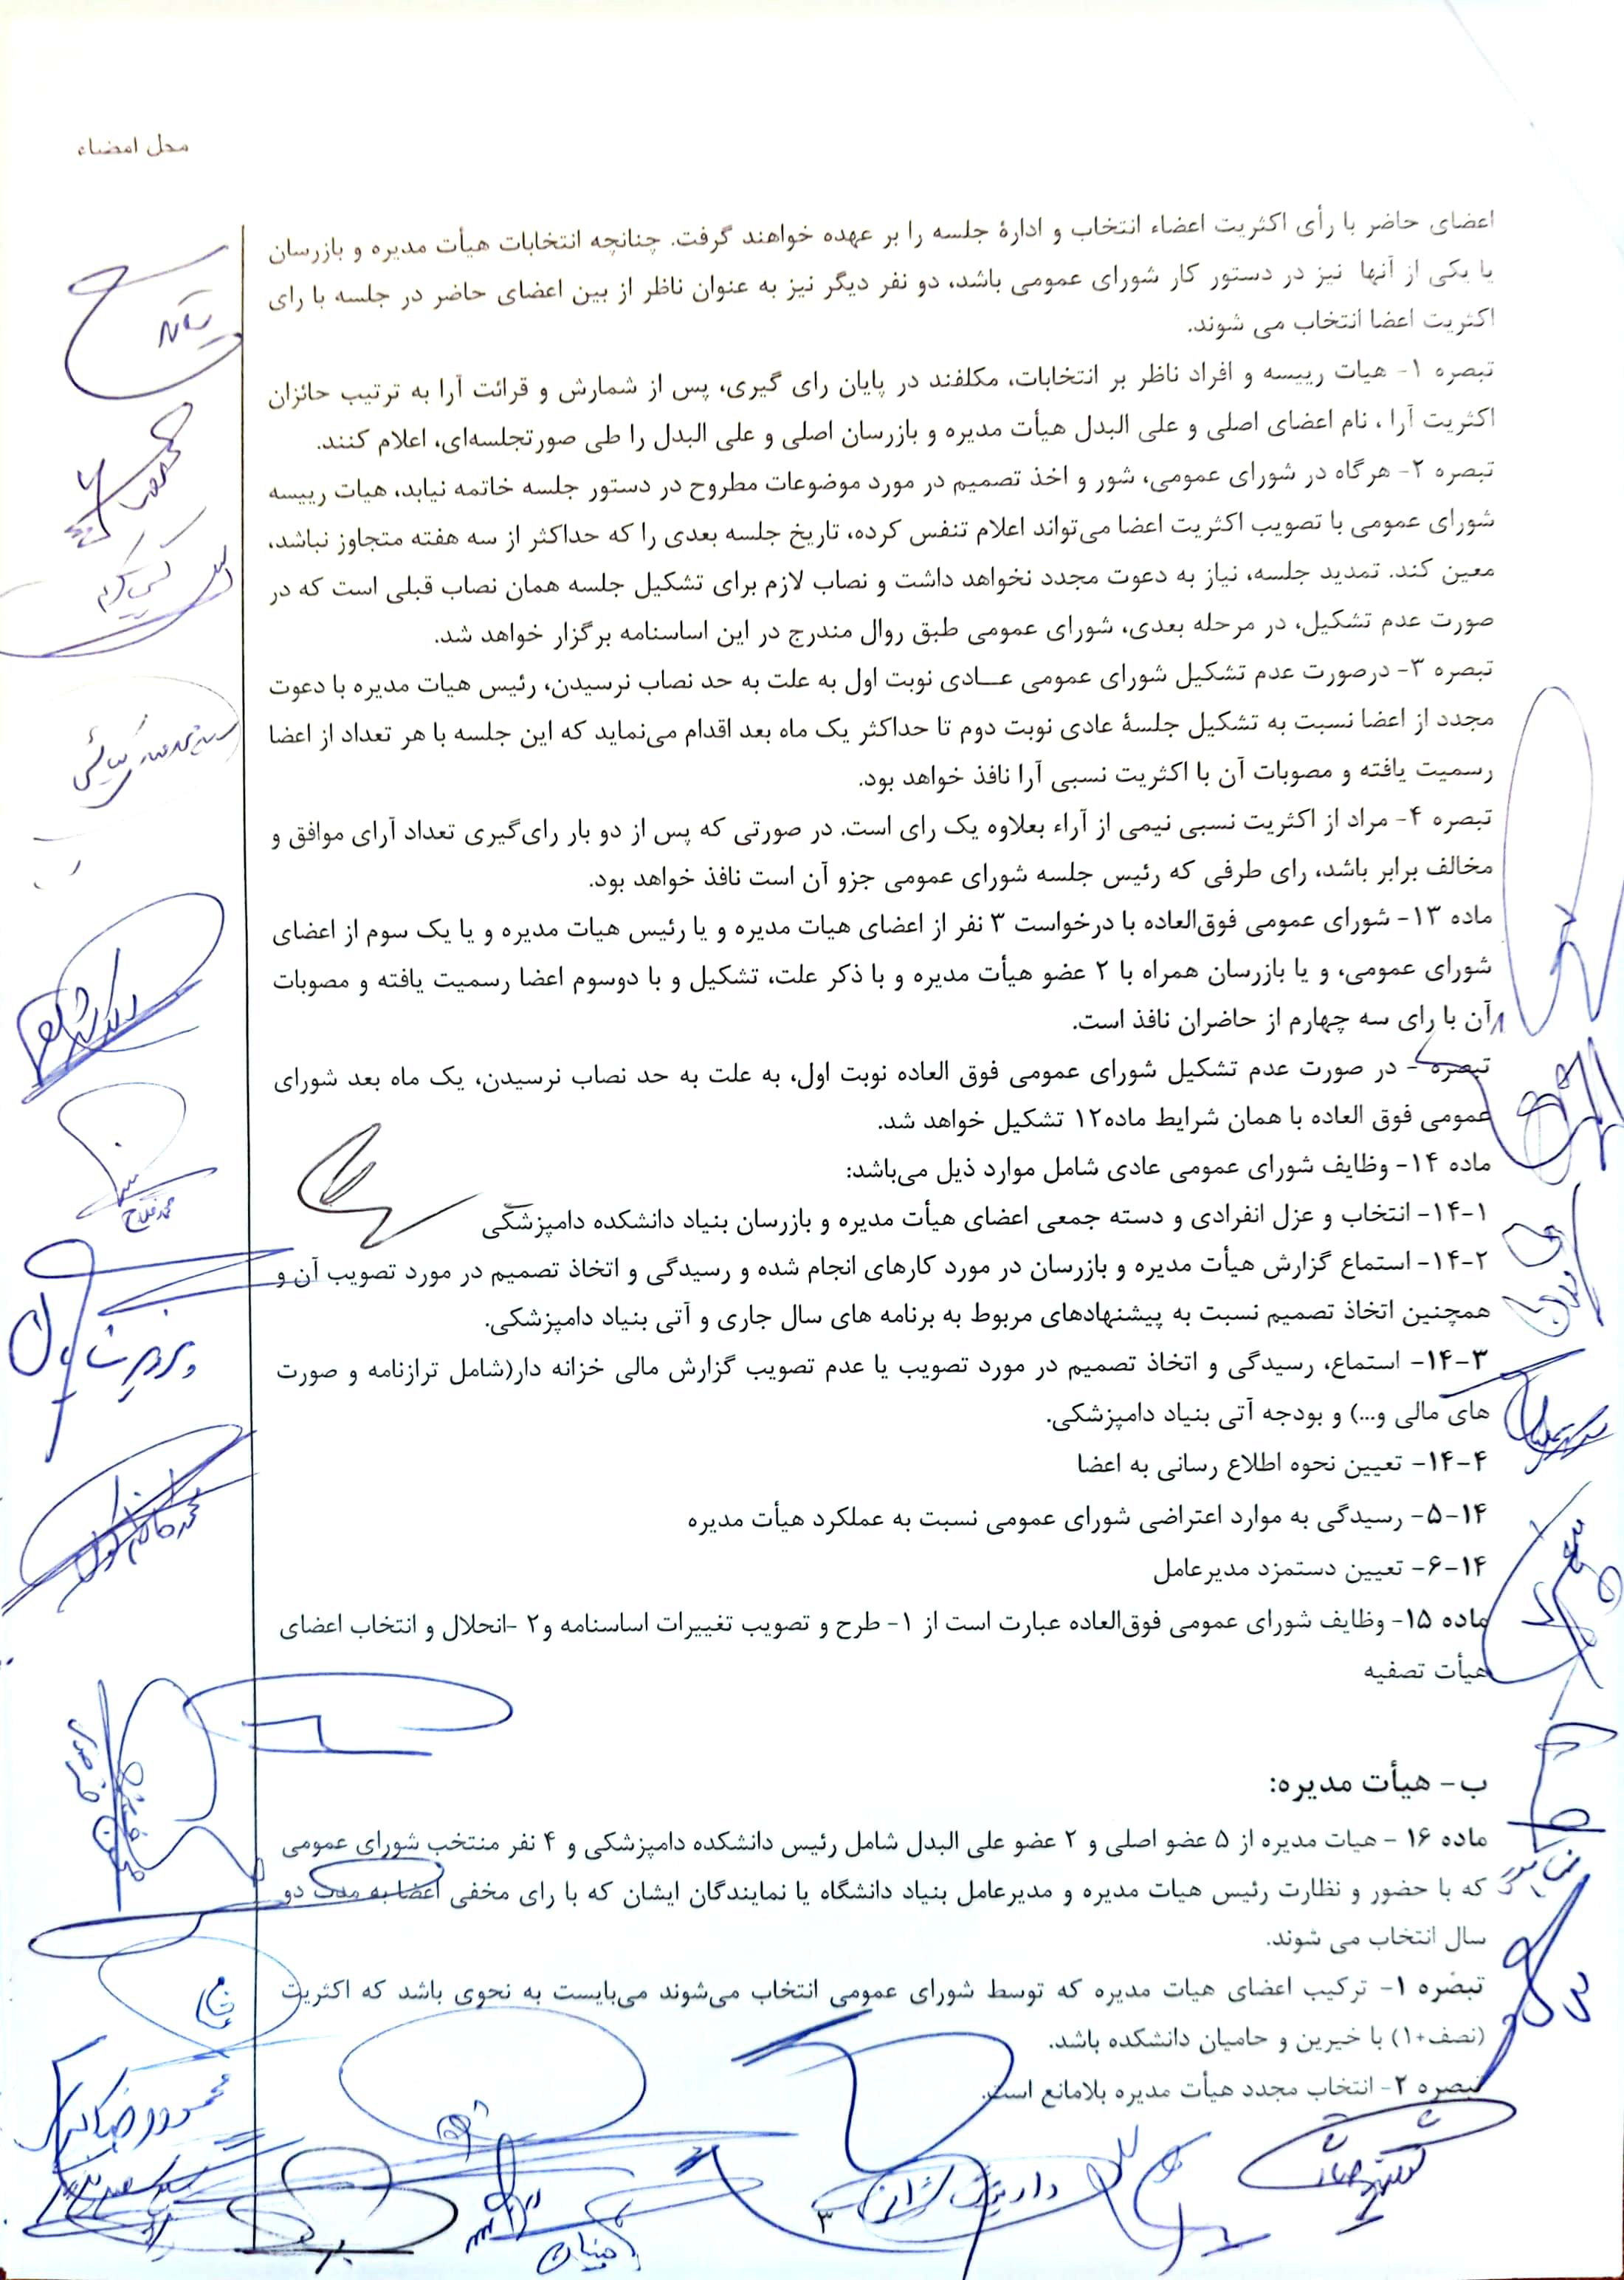 محل امضاء
اعضای حاضر با رأی اکثریت اعضاء انتخاب و ادارهٔ جلسه را بر عهده خواهند گرفت. چنانچه انتخابات هیأت مدیره و بازرسان
یا یکی از آنها نیز در دستور کار شورای عمومی باشد، دو نفر دیگر نیز به عنوان ناظر از بین اعضای حاضر در جلسه با رای
اکثریت اعضا انتخاب می شوند.
تبصره ۱- هیات رییسه و افراد ناظر بر انتخابات، مکلفند در پایان رای گیری، پس از شمارش و قرائت آرا به ترتیب حائزان
اکثریت آرا ، نام اعضای اصلی و علی البدل هیأت مدیره و بازرسان اصلی و علی البدل را طی صورتجلسه‌ای، اعلام کنند.
تبصره ۲- هرگاه در شورای عمومی، شور و اخذ تصمیم در مورد موضوعات مطروح در دستور جلسه خاتمه نیابد، هیات رییسه
شورای عمومی با تصویب اکثریت اعضا می‌تواند اعلام تنفس کرده، تاریخ جلسه بعدی را که حداکثر از سه هفته متجاوز نباشد،
معین کند. تمدید جلسه، نیاز به دعوت مجدد نخواهد داشت و نصاب لازم برای تشکیل جلسه همان نصاب قبلی است که در
صورت عدم تشکیل، در مرحله بعدی، شورای عمومی طبق روال مندرج در این اساسنامه برگزار خواهد شد.
تبصره ۳- درصورت عدم تشکیل شورای عمومی عـــادی نوبت اول به علت به حد نصاب نرسیدن، رئیس هیات مدیره با دعوت
مجدد از اعضا نسبت به تشکیل جلسهٔ عادی نوبت دوم تا حداکثر یک ماه بعد اقدام می‌نماید که این جلسه با هر تعداد از اعضا
رسمیت یافته و مصوبات آن با اکثریت نسبی آرا نافذ خواهد بود.
تبصره ۴- مراد از اکثریت نسبی نیمی از آراء بعلاوه یک رای است. در صورتی که پس از دو بار رای‌گیری تعداد آرای موافق و
مخالف برابر باشد، رای طرفی که رئیس جلسه شورای عمومی جزو آن است نافذ خواهد بود.
ماده ۱۳- شورای عمومی فوق‌العاده با درخواست ۳ نفر از اعضای هیات مدیره و یا رئیس هیات مدیره و یا یک سوم از اعضای
شورای عمومی، و یا بازرسان همراه با ۲ عضو هیأت مدیره و با ذکر علت، تشکیل و با دوسوم اعضا رسمیت یافته و مصوبات
آن با رای سه چهارم از حاضران نافذ است.
تبصره - در صورت عدم تشکیل شورای عمومی فوق العاده نوبت اول، به علت به حد نصاب نرسیدن، یک ماه بعد شورای
عمومی فوق العاده با همان شرایط ماده۱۲ تشکیل خواهد شد.
ماده ۱۴- وظایف شورای عمومی عادی شامل موارد ذیل می‌باشد:
۱۴-۱- انتخاب و عزل انفرادی و دسته جمعی اعضای هیأت مدیره و بازرسان بنیاد دانشکده دامپزشکی
۱۴-۲- استماع گزارش هیأت مدیره و بازرسان در مورد کارهای انجام شده و رسیدگی و اتخاذ تصمیم در مورد تصویب آن و
همچنین اتخاذ تصمیم نسبت به پیشنهادهای مربوط به برنامه های سال جاری و آتی بنیاد دامپزشکی.
۱۴-۳- استماع، رسیدگی و اتخاذ تصمیم در مورد تصویب یا عدم تصویب گزارش مالی خزانه دار(شامل ترازنامه و صورت
های مالی و...) و بودجه آتی بنیاد دامپزشکی.
۱۴-۴- تعیین نحوه اطلاع رسانی به اعضا
۱۴-۵- رسیدگی به موارد اعتراضی شورای عمومی نسبت به عملکرد هیأت مدیره
۱۴-۶- تعیین دستمزد مدیرعامل
ماده ۱۵- وظایف شورای عمومی فوق‌العاده عبارت است از ۱- طرح و تصویب تغییرات اساسنامه و۲ -انحلال و انتخاب اعضای
هیأت تصفیه
ب- هیأت مدیره:
ماده ۱۶ - هیات مدیره از ۵ عضو اصلی و ۲ عضو علی البدل شامل رئیس دانشکده دامپزشکی و ۴ نفر منتخب شورای عمومی
که با حضور و نظارت رئیس هیات مدیره و مدیرعامل بنیاد دانشگاه یا نمایندگان ایشان که با رای مخفی اعضا به مدت دو
سال انتخاب می شوند.
تبصره ۱- ترکیب اعضای هیات مدیره که توسط شورای عمومی انتخاب می‌شوند می‌بایست به نحوی باشد که اکثریت
(نصف+۱) با خیرین و حامیان دانشکده باشد.
تبصره ۲- انتخاب مجدد هیأت مدیره بلامانع است.
۳